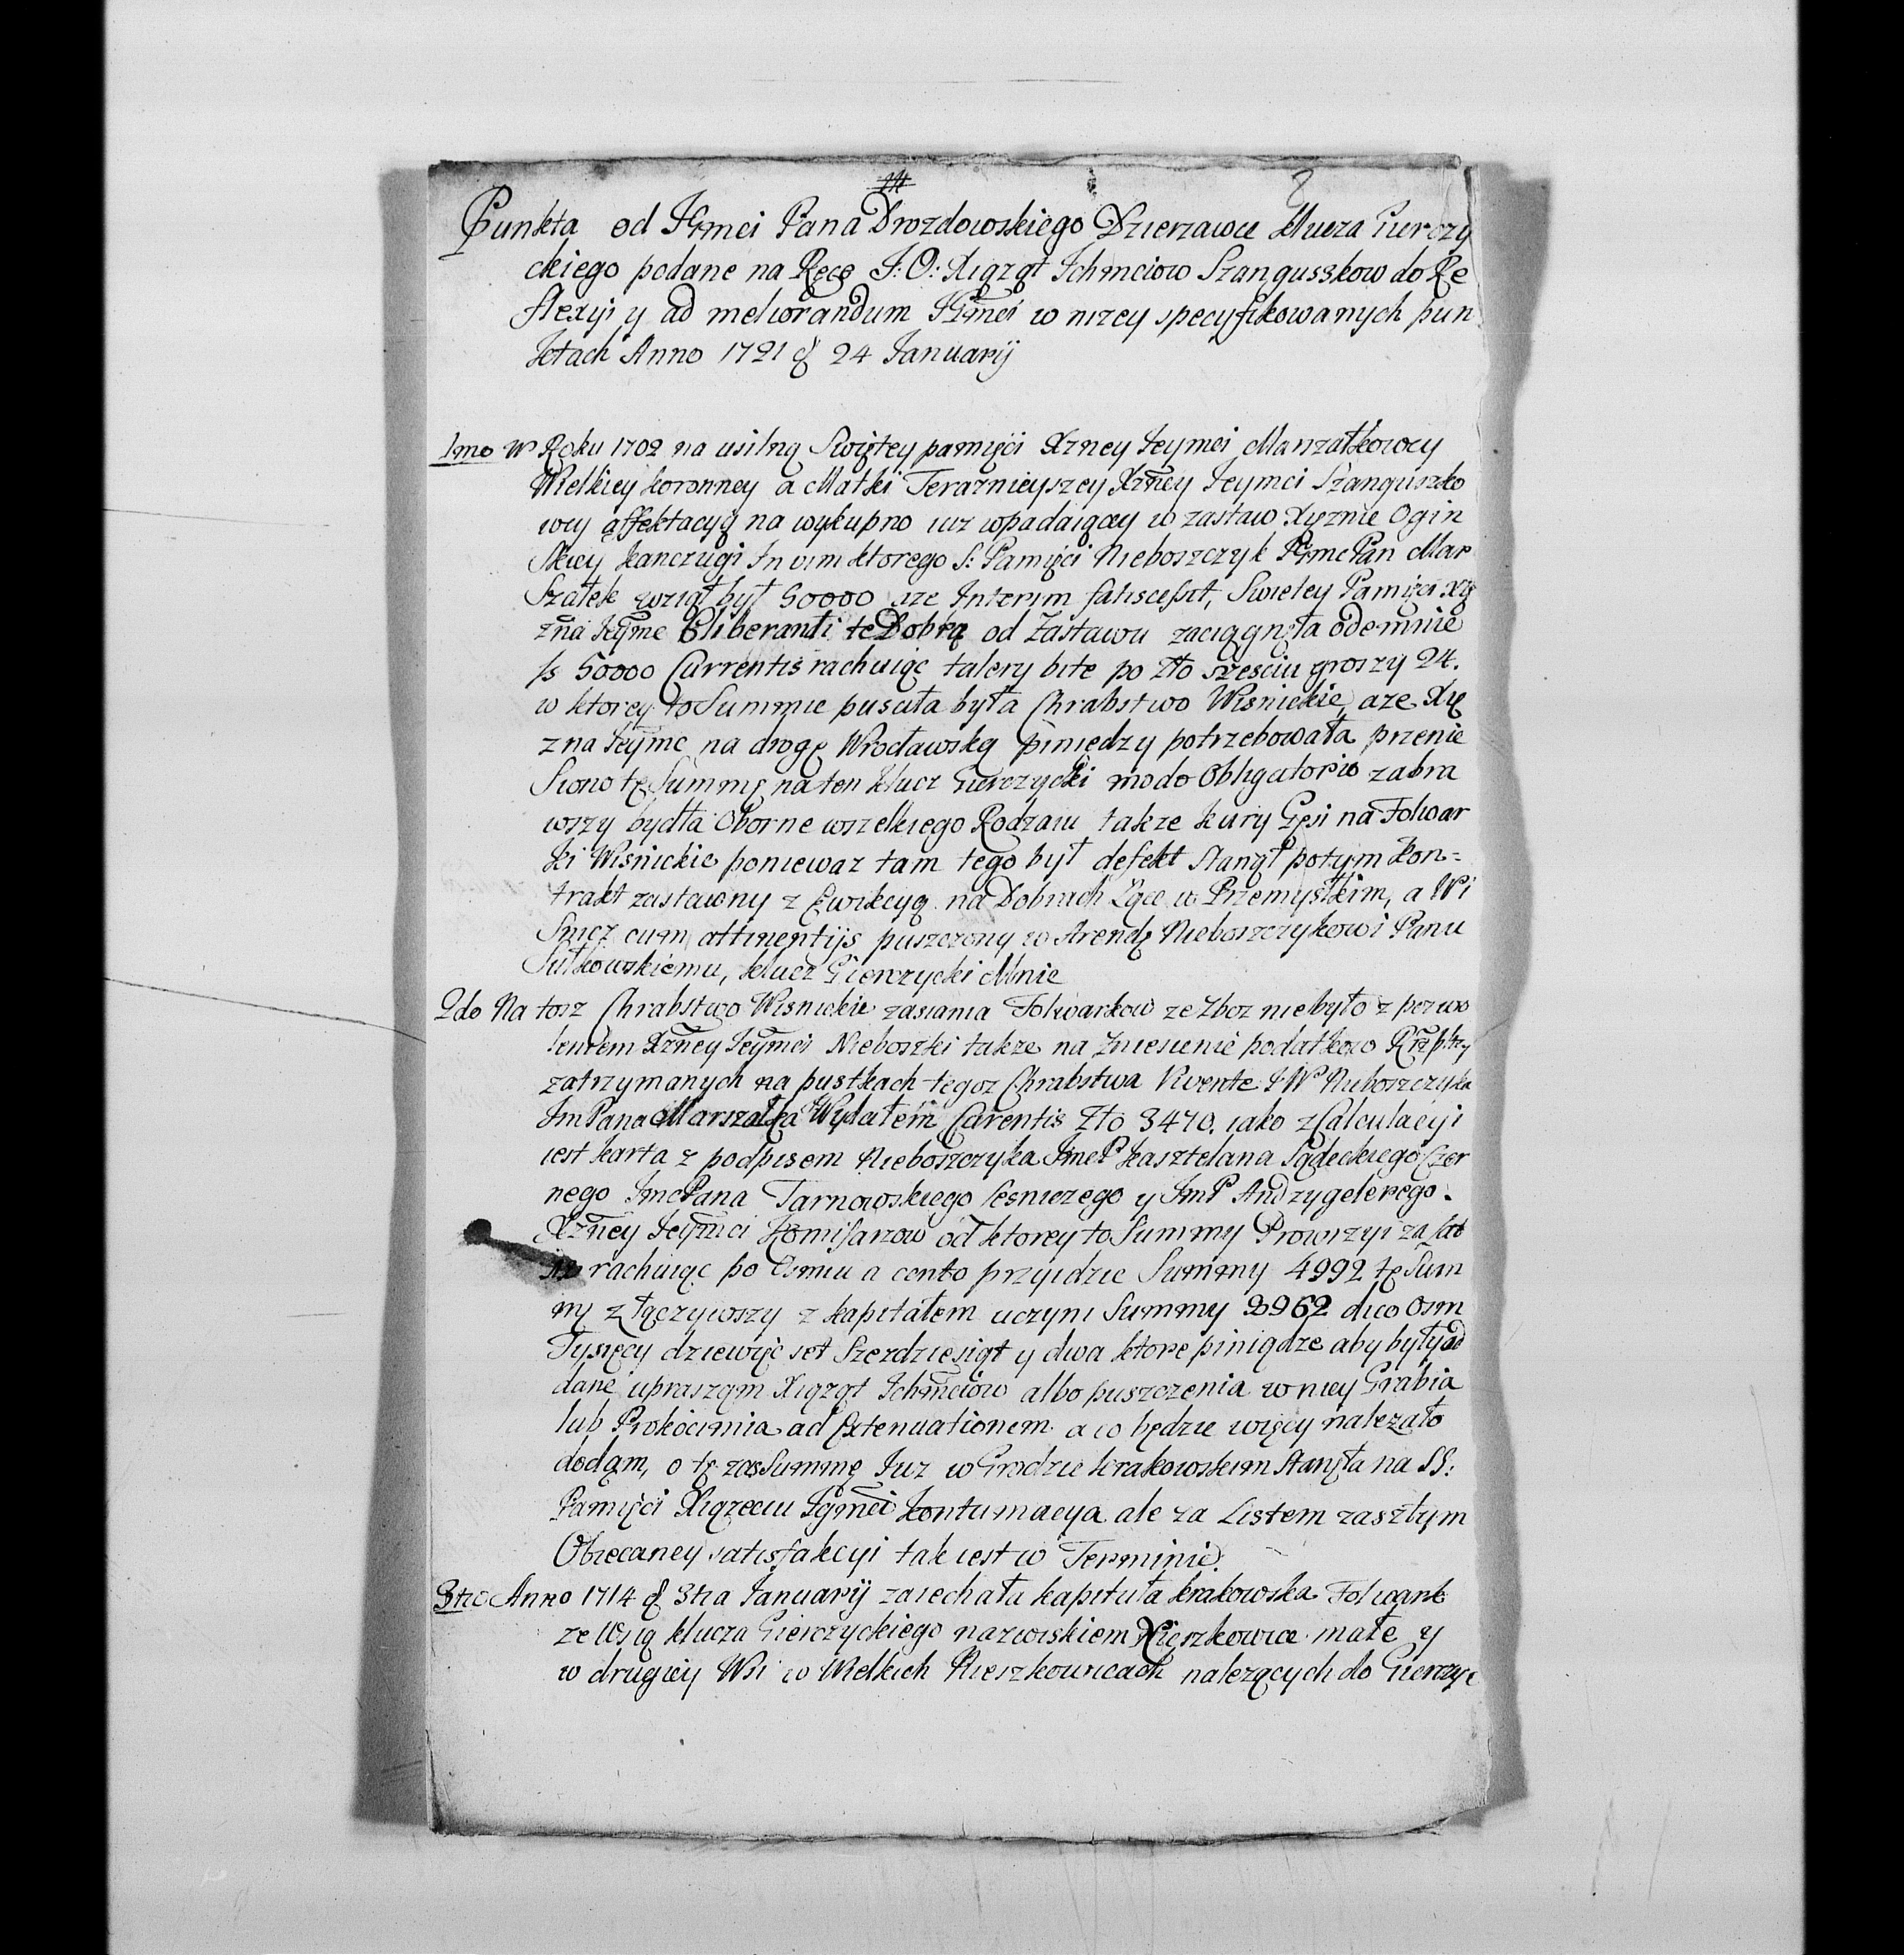 Punkta od JEmci Pana Drozdowskiego Dzierzawce klucza Gierczy
ckiego podane na Ręce J: O: Xiąząt Ichmciow Szanguszkow do Re
flexyi y ad meliorandum JEmci w nizey specyfikowanych pun
ktach Anno 1721 d 24 Ianuarij
1mo W Roku 1702 na usilną Swiętey pamięci Xzney Jeymci Marszałkowey
Wielkiey koronney a Matki Teraznieyszey Xzney Jeymci Szanguszko
wey affektacyą na wykupno iuz wpadaiącey w zastaw Xięznie Ogin
skiey kanczugi In vim ktorego S: Pamięci Nieboszczyk Pan Mar
szałek wziął był 50000 aze Interim Swietey Pamięci Xię
zna Jeyme te Dobra od Zastawu zaciągnęła odemnie
50000 Currentis rachuiąc talery bite po Zło szesciu groszy 24.
w ktorey to Summie pusciła była Chrabstwo Wisnickie, aze Xię
zna Jeymc na drogę Wrocławską piniędzy potrzebowała przenie
siono tę Summę na ten klucz Gierczycki modo Obligatorio zabra
wszy bydła Oborne wszelkiego Rodzaiu takze kury Gęsi na Folwar
ki Wisnickie poniewaz tam tego był defekt stanął potym kon=
trakt zastawny z Ewikcyą na Dobrach Łące w Przemyskim, a Wi
snicz cum attinentijs puszczony w Arendę Nieboszczykowi Panu
Sułkowskiemu, klucz Gierczycki Mnie
2do Na tosz Chrabstwo Wisnickie zasiania Folwarkow ze Zboz niebyło z pozwo
leniem Xzney Jeymci Nieboszki takze na Zniesienie podatkow Rzpltey
zatrzymanych na pustkach tegoz Chrabstwa Vivente J W Nieboszczyka
Im Pana Marszałka Wydałem Currentis Zło 3470. iako z Calculacyi
iest karta z podpisem Nieboszczyka Jmc P kasztelana Sądeckiego Czer
nego Jmc Pana Tarnowskiego lesniczego y Jm P
Xzney Jeymci Komisarzow od ktorey to Summy Prowizyi za lat
rachuiąc po Osmiu a cento przyidzie Summy 4992 tę Sum
mę złączywszy z kapitałem uczyni Summy 8962 dico Osm
Tysięcy dziewięc set Szezdziesiąt y dwa ktore piniądze aby były od
dane upraszam Xiąząt Ichmciow albo puszczenia w niey Grabia
lub Prokocimia ad Extenuationem a co będzie więcy nalezało
dodam, o tę zas Summę Iuz w Grodzie krakowskim stanęła na SS:
Pamięci Xiązęciu Jymci kontumacya ale za Listem zaszłym
Obiecaney satisfakcyi tak iest w Terminie.
3tio Anno 1714 d 3tia Ianuarij zaiechała kapituła krakowska Folwark
ze Wsią klucza Gierczyckiego nazwiskiem Xięszkowice małe y
w drugiey Wsi w Wielkich Kieszkowicach nalezących do Gierczyc